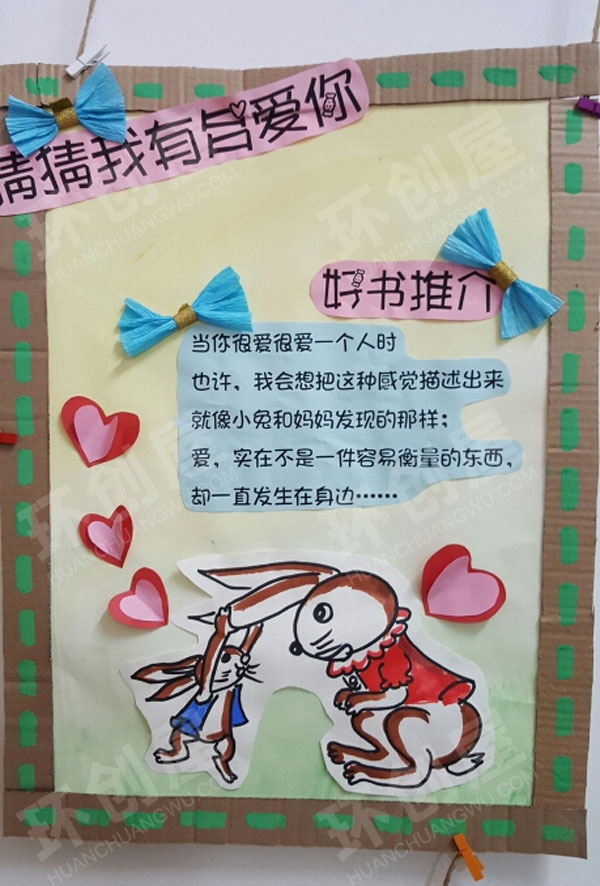 猜猜我有多爱你
好书推介
当你很爱很爱一个人时
也许，我会想把这种感觉描述出来
就像小兔和妈妈发现的那样；
爱，实在不是一件容易衡量的东西，
却一直发生在身边……
环创屋
HUANCHUANGWU.COM
环创屋
HUANCHUANGWU.COM
环创屋
HUANCHUANGWU.COM
环创屋
HUANCHUANGWU.COM
环创屋
HUANCHUANGWU.COM
环创屋
HUANCHUANGWU.COM